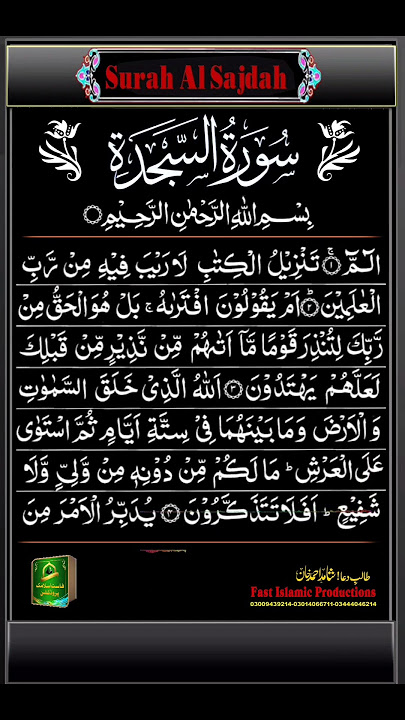 Surah Al Sajdah
سُوْرَةُ السَّجْدَةِ
بِسْمِ اللهِ الرَّحْمٰنِ الرَّحِيْمِ
الٓمّٓ ۚ﴿۱﴾ تَنْزِيْلُ الْكِتٰبِ لَا رَيْبَ فِيْهِ مِنْ رَّبِّ
الْعٰلَمِيْنَ ؕ﴿۲﴾ اَمْ يَقُوْلُوْنَ افْتَرٰىهُ ۚ بَلْ هُوَ الْحَقُّ مِنْ
رَّبِّكَ لِتُنْذِرَ قَوْمًا مَّاۤ اَتٰىهُمْ مِّنْ نَّذِيْرٍ مِّنْ قَبْلِكَ
لَعَلَّهُمْ يَهْتَدُوْنَ ﴿۳﴾ اَللهُ الَّذِىْ خَلَقَ السَّمٰوٰتِ
وَالْاَرْضَ وَمَا بَيْنَهُمَا فِىْ سِتَّةِ اَيَّامٍ ثُمَّ اسْتَوٰى
عَلَى الْعَرْشِ ؕ مَا لَكُمْ مِّنْ دُوْنِهٖ مِنْ وَّلِىٍّ وَّلَا
شَفِيْعٍ ؕ اَفَلَا تَتَذَكَّرُوْنَ ﴿۴﴾ يُدَبِّرُ الْاَمْرَ مِنَ
طالبِ دعا! شاہد احمد خان
Fast Islamic Productions
03009439214-03014066711-03444046214
فاسٹ اسلامک
پروڈکشن